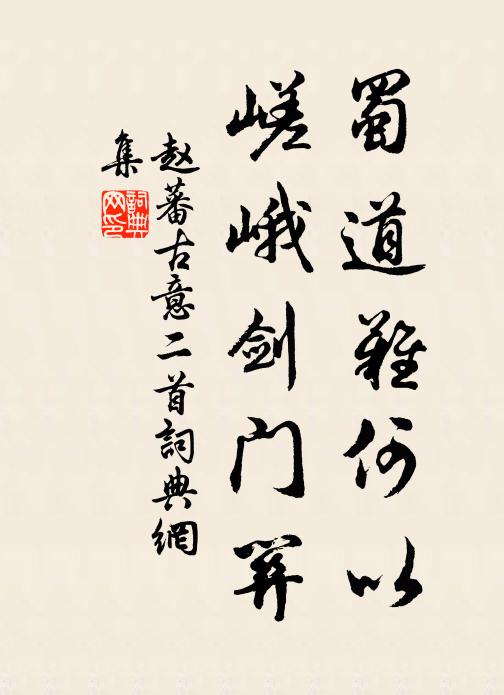 蜀道難何以
嵯峨劍门關
赵蕃古意二首詞典網
集
詞典
网印